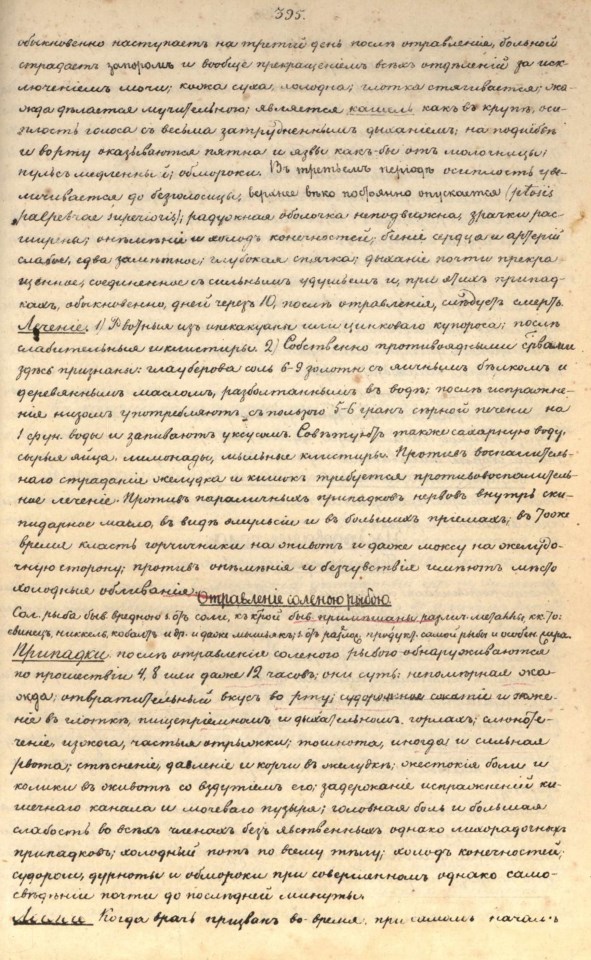 395.
обыкновенно наступаетъ на третій день послѣ отравленія, больной
страдаетъ запоромъ и вообще прекращеніемъ всѣхъ отдѣленій за иск-
люченіемъ мочи; кожа суха, холодна; глотка стягивается; жа-
жда дѣлается мучительною; является кашель какъ въ крупѣ, оси-
плость голоса съ весьма затрудненнымъ дыханіемъ; на подошвѣ
и во рту оказываются пятна и язвы какъ-бы отъ молочницы;
пульсъ медленный; обмороки. Въ третьемъ періодѣ осиплость уве-
личивается до безголосицы, верхнее вѣко постоянно опускается (ptosis
palpebrae superioris); радужная оболочка неподвижна, зрачки рас-
ширены; онѣмѣніе и холодъ конечностей; біеніе сердца и артерій
слабое, едва замѣтное; глубокая спячка; дыханіе почти прекра-
щенное, соединенное съ сильнымъ удушьемъ и, при этихъ припад-
кахъ, обыкновенно, дней черезъ 10, послѣ отравленія, слѣдуетъ смерть.
Леченіе: 1) Рвотныя изъ ипекакуаны или цинковаго купороса; послѣ
слабительныя и клистиры. 2) Собственно противоядными
здѣсь признаны: глауберова соль 6-9 золотн. съ яичнымъ бѣлкомъ и
деревяннымъ масломъ, разболтаннымъ въ водѣ; послѣ испражне-
нія низомъ употребляютъ съ пользою 5-6 гранъ сѣрной печени на
1 фун. воды и запиваютъ уксусомъ. Совѣтуютъ также сахарную воду,
сырыя яйца, лимонады, мыльные клистиры. Противъ воспалитель-
наго страданія желудка и кишокъ требуется противовоспалитель-
ное леченіе. Противъ параличныхъ припадковъ нервовъ внутрь ски-
пидарное масло, въ видѣ эмульсіи и въ большихъ пріемахъ; въ тоже
время класть горчичники на животъ и даже моксу на желудо-
чную сторону; противъ онѣмѣнія и безчувствія имѣютъ мѣсто
холодныя обливанія.
Отравленіе соленою рыбою.
Сол. рыба быв. вредною отъ соли, къ которой быв. примѣшаны различ. металлы, как то:
свинецъ, никкель, кобальтъ и др. и даже мышьякъ; отъ продукт. самой рыбы и особен.
Припадки послѣ отравленія соленою рыбою обнаруживаются
по прошествіи 4, 8 или даже 12 часовъ; они суть: непомѣрная жа-
жда; отвратительный вкусъ во рту; судорожное сжатіе и жже-
ніе въ глоткѣ, пищепріемномъ и дыхательномъ горлахъ; слюноте-
ченіе, изжога, частыя отрыжки; тошнота, иногда и сильная
рвота; стѣсненіе, давленіе и корчи въ желудкѣ; жестокія боли и
колики въ животѣ со вздутіемъ его; задержаніе испражненій ки-
шечнаго канала и мочеваго пузыря; головная боль и большая
слабость во всѣхъ членахъ безъ явственныхъ однако лихорадочныхъ
припадковъ; холодный потъ по всему тѣлу; холодъ конечностей;
судороги, дурноты и обмороки при совершенномъ однако само-
свѣденіи почти до послѣдней минуты.
Когда врачъ призванъ во-время, при самомъ началѣ